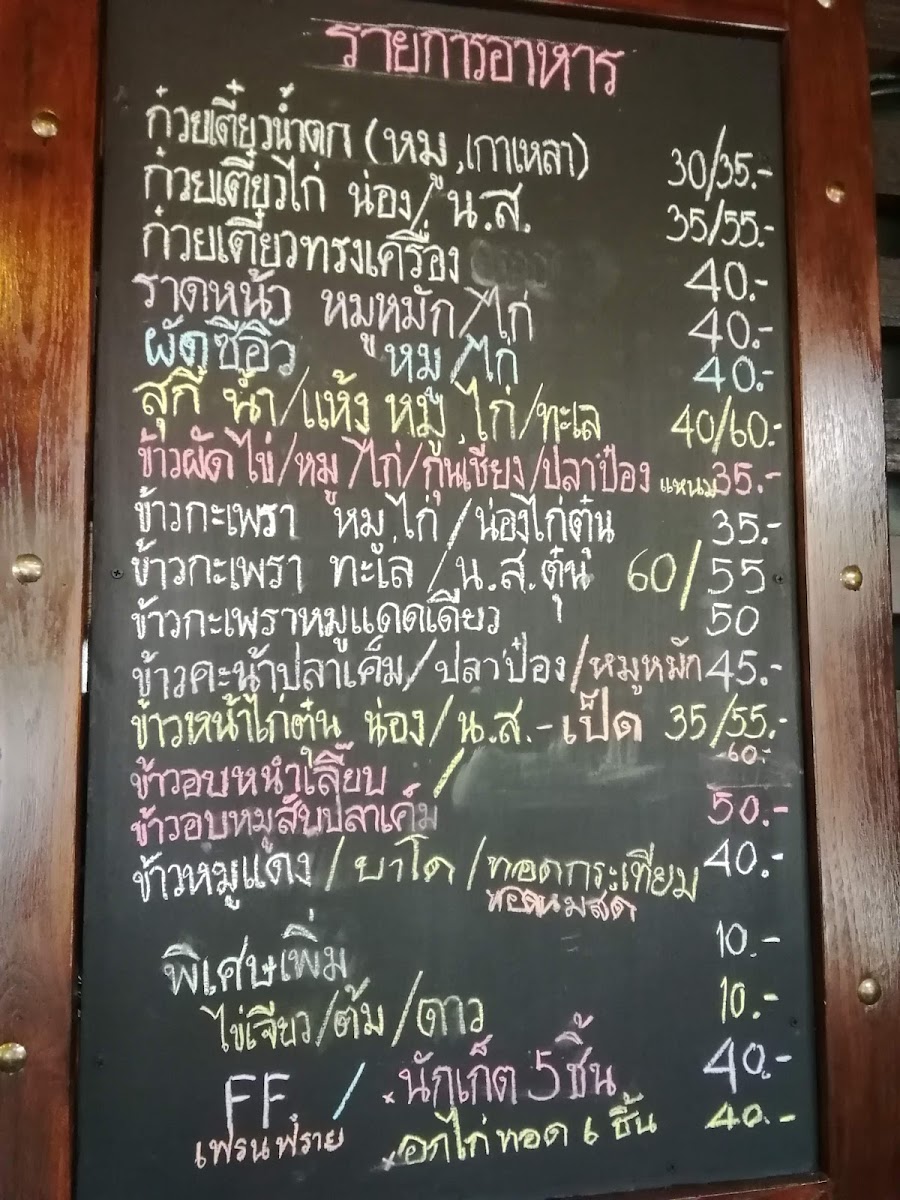 รายการอาหาร
ก๋วยเตี๋ยวน้ำตก (หมู,เกาเหลา) 30/35.-
ก๋วยเตี๋ยวไก่ น่อง/น.ส. 35/55.-
ก๋วยเตี๋ยวทรงเครื่อง 40.-
ราดหน้า หมูหมัก/ไก่ 40.-
ผัดซีอิ๊ว หมู/ไก่ 40.-
สุกี้ น้ำ/แห้ง หมู,ไก่/ทะเล 40/60.-
ข้าวผัดไข่/หมู/ไก่/กุนเชียง/ปลาป๋อง แหนม 35.-
ข้าวกะเพรา หมู,ไก่/น่องไก่ตุ๋น 35.-
ข้าวกะเพรา ทะเล/น.ส.ตุ๋น 60/55
ข้าวกะเพราหมูแดดเดียว 50
ข้าวคะน้าปลาเค็ม/ปลาป๋อง/หมูหมัก 45.-
ข้าวหน้าไก่ตุ๋น น่อง/น.ส.-เป็ด 35/55.-
60.-
ข้าวอบหนำเลี๊ยบ /
ข้าวอบหมูสับปลาเค็ม 50.-
ข้าวหมูแดง/บาโด/ทอดกระเทียม 40.-
ทอดนมสด
พิเศษเพิ่ม 10.-
ไข่เจียว/ต้ม/ดาว 10.-
FF / นักเก็ต 5 ชิ้น 40.-
เฟรนฟราย อกไก่ทอด 6 ชิ้น 40.-